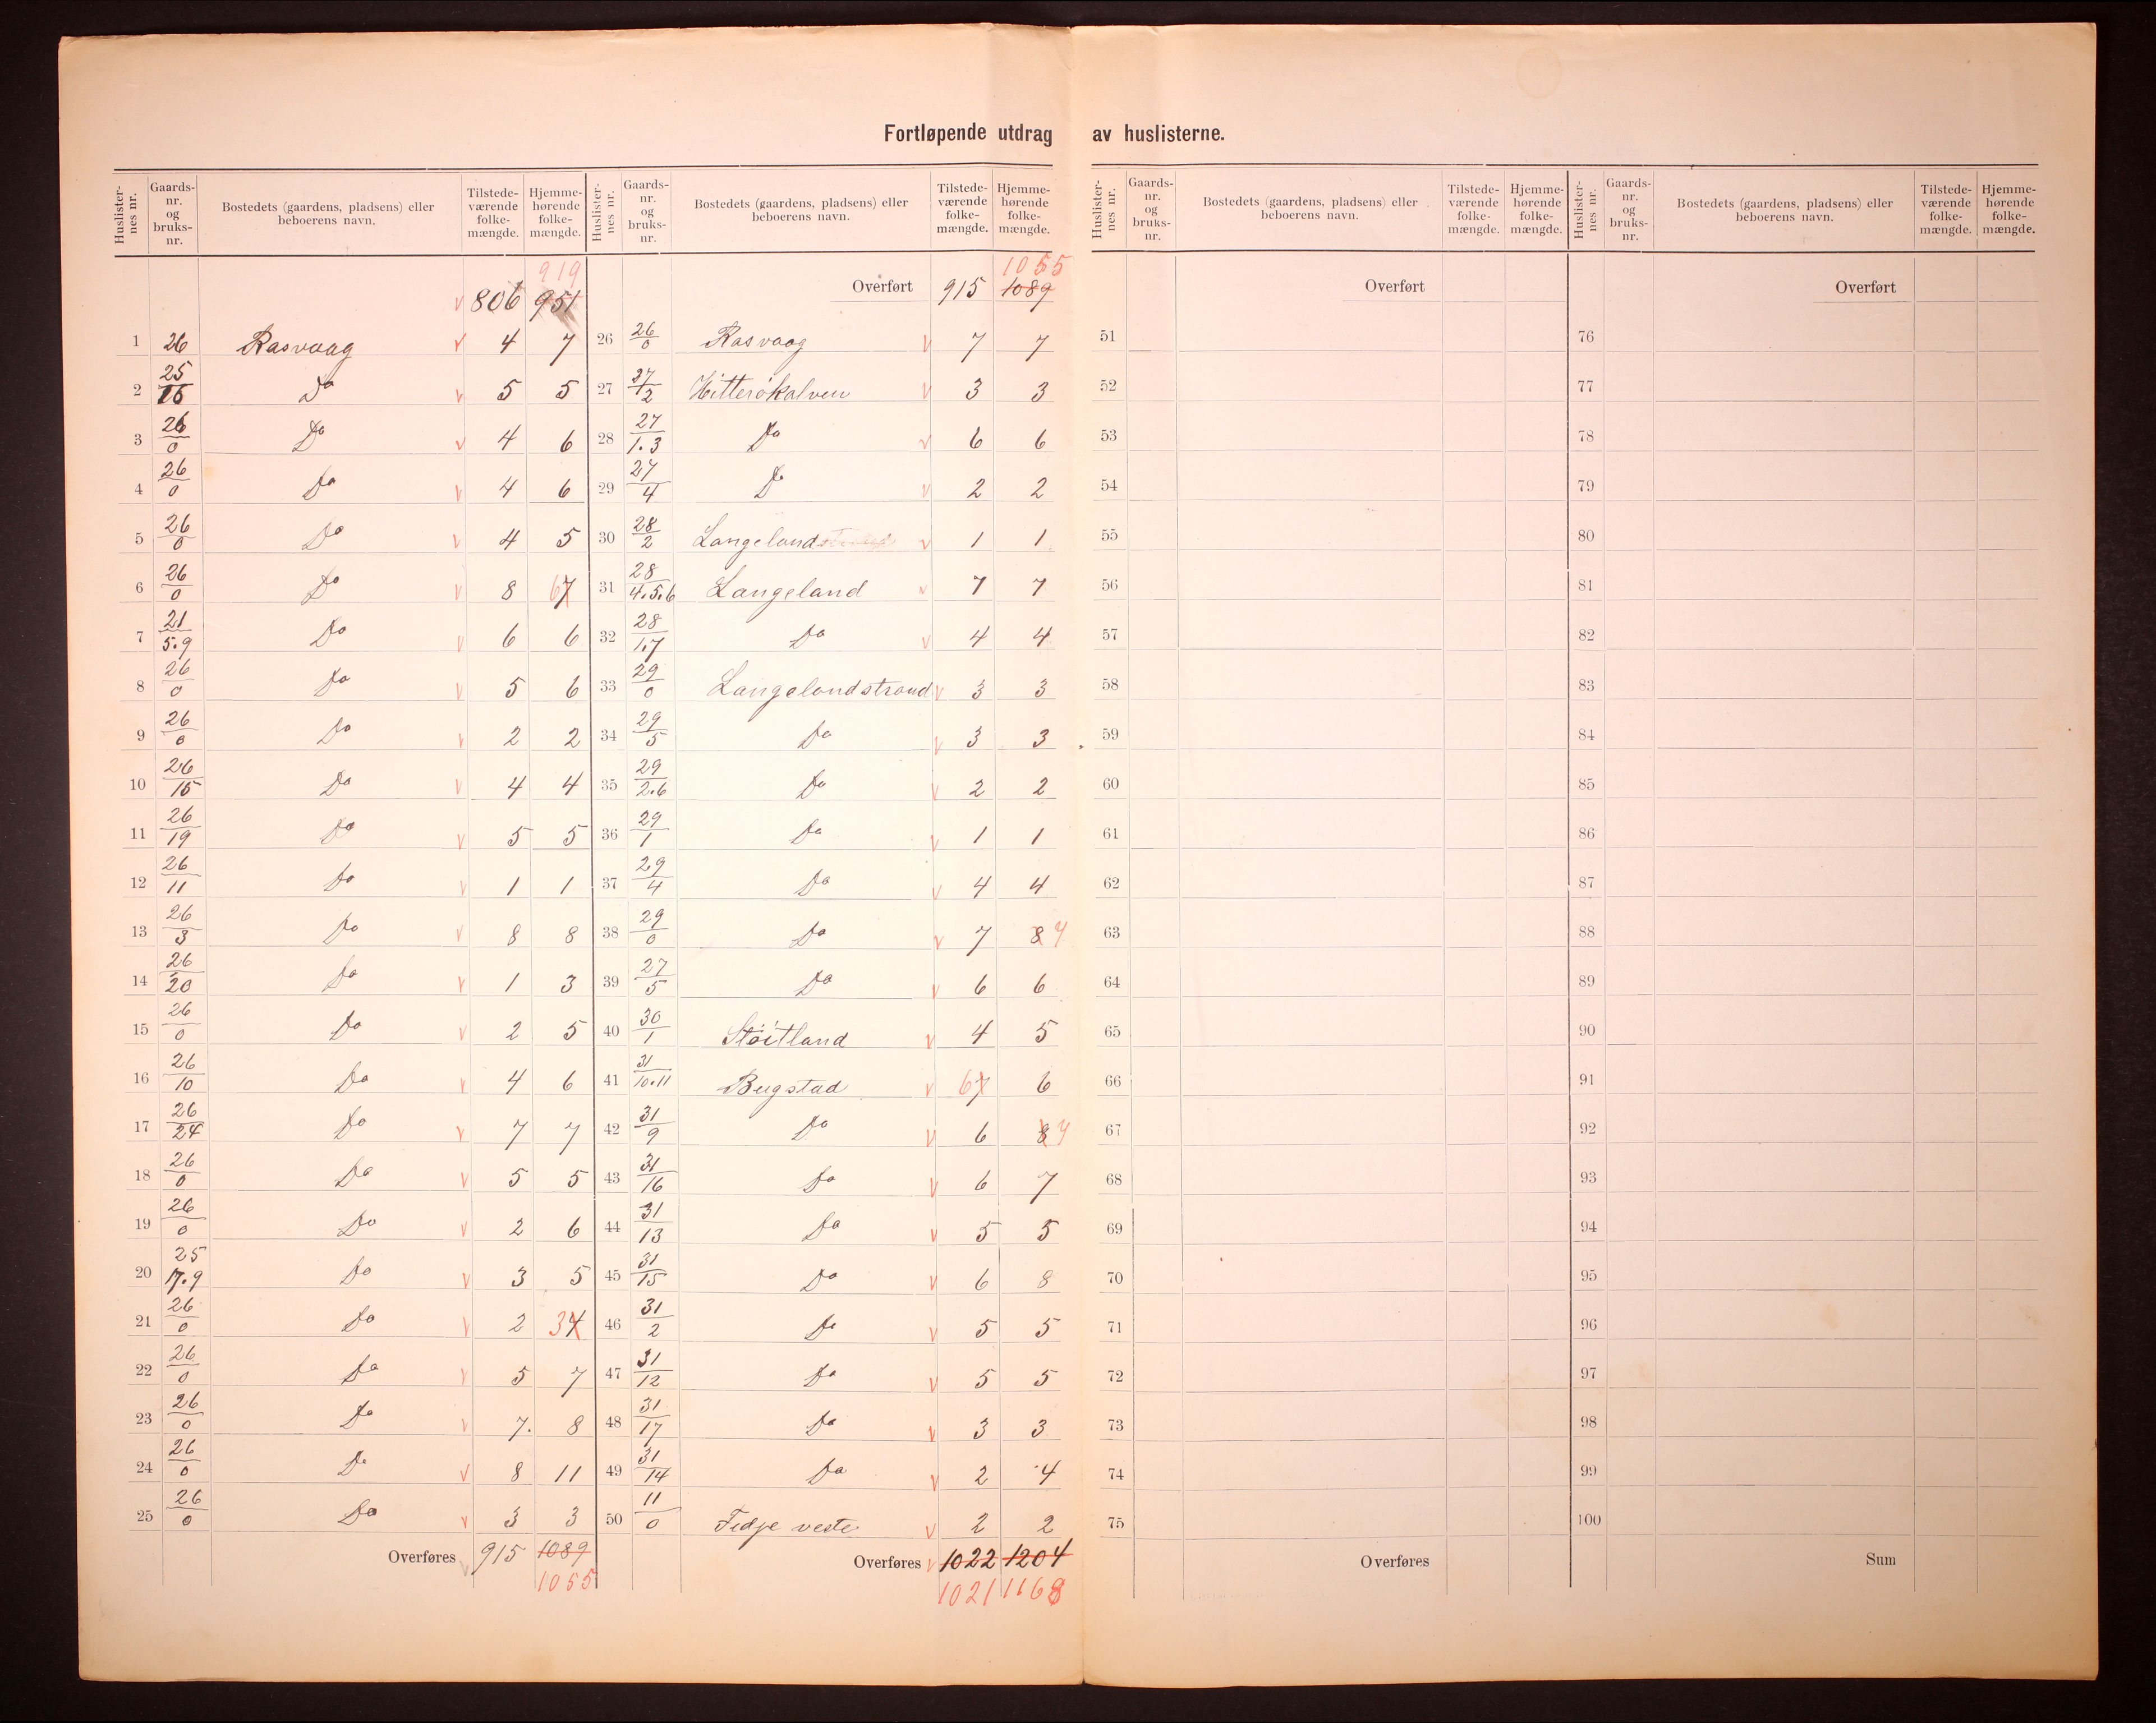 Fortløpende utdrag av huslisterne.
Huslisternes nr. | Gaards-nr. og bruks-nr. | Bostedets (gaardens, pladsens) eller beboerens navn. | Tilstedeværende folkemængde. | Hjemmehørende folkemængde. | Huslisternes nr. | Gaards-nr. og bruks-nr. | Bostedets (gaardens, pladsens) eller beboerens navn. | Tilstedeværende folkemængde. | Hjemmehørende folkemængde.
919
806 951
1 26 Rasvaag 4 7
2 25/16 Do 5 5
3 26/0 Do 4 6
4 26/0 Do 4 6
5 26/0 Do 4 5
6 26/0 Do 8 6 7
7 21/5.9 Do 6 6
8 26/0 Do 5 6
9 26/0 Do 2 2
10 26/15 Do 4 4
11 26/19 Do 5 5
12 26/11 Do 1 1
13 26/3 Do 8 8
14 26/20 Do 1 3
15 26/0 Do 2 5
16 26/10 Do 4 6
17 26/24 Do 7 7
18 26/0 Do 5 5
19 26/0 Do 2 6
20 25/17.9 Do 3 5
21 26/0 Do 2 3 4
22 26/0 Do 5 7
23 26/0 Do 7. 8
24 26/0 Do 8 11
25 26/0 Do 3 3
Overføres 915 1089
1055
1055
Overført 915 1089
26 26/0 Rasvaag 7 7
27 27/2 Hitterökalven 3 3
28 27/1.3 Do 6 6
29 27/4 Do 2 2
30 28/2 Langeland 1 1
31 28/4.5.6 Langeland 7 7
32 28/1.7 Do 4 4
33 29/0 Langelandstrand 3 3
34 29/5 Do 3 3
35 29/2.6 Do 2 2
36 29/1 Do 1 1
37 29/4 Do 4 4
38 29/0 Do 7 8 7
39 27/5 Do 6 6
40 30/1 Støitland 4 5
41 31/10.11 Bugstad 6 7 6
42 31/9 Do 6 8 7
43 31/16 Do 6 7
44 31/13 Do 5 5
45 31/15 Do 6 8
46 31/2 Do 5 5
47 31/12 Do 5 5
48 31/17 Do 3 3
49 31/14 Do 2 4
50 11/0 Fedje veste 2 2
Overføres 1022 1204
1021 1168
Huslisternes nr. | Gaards-nr. og bruks-nr. | Bostedets (gaardens, pladsens) eller beboerens navn. | Tilstedeværende folkemængde. | Hjemmehørende folkemængde. | Huslisternes nr. | Gaards-nr. og bruks-nr. | Bostedets (gaardens, pladsens) eller beboerens navn. | Tilstedeværende folkemængde. | Hjemmehørende folkemængde.
Overført
51
52
53
54
55
56
57
58
59
60
61
62
63
64
65
66
67
68
69
70
71
72
73
74
75
Overføres
Overført
76
77
78
79
80
81
82
83
84
85
86
87
88
89
90
91
92
93
94
95
96
97
98
99
100
Sum